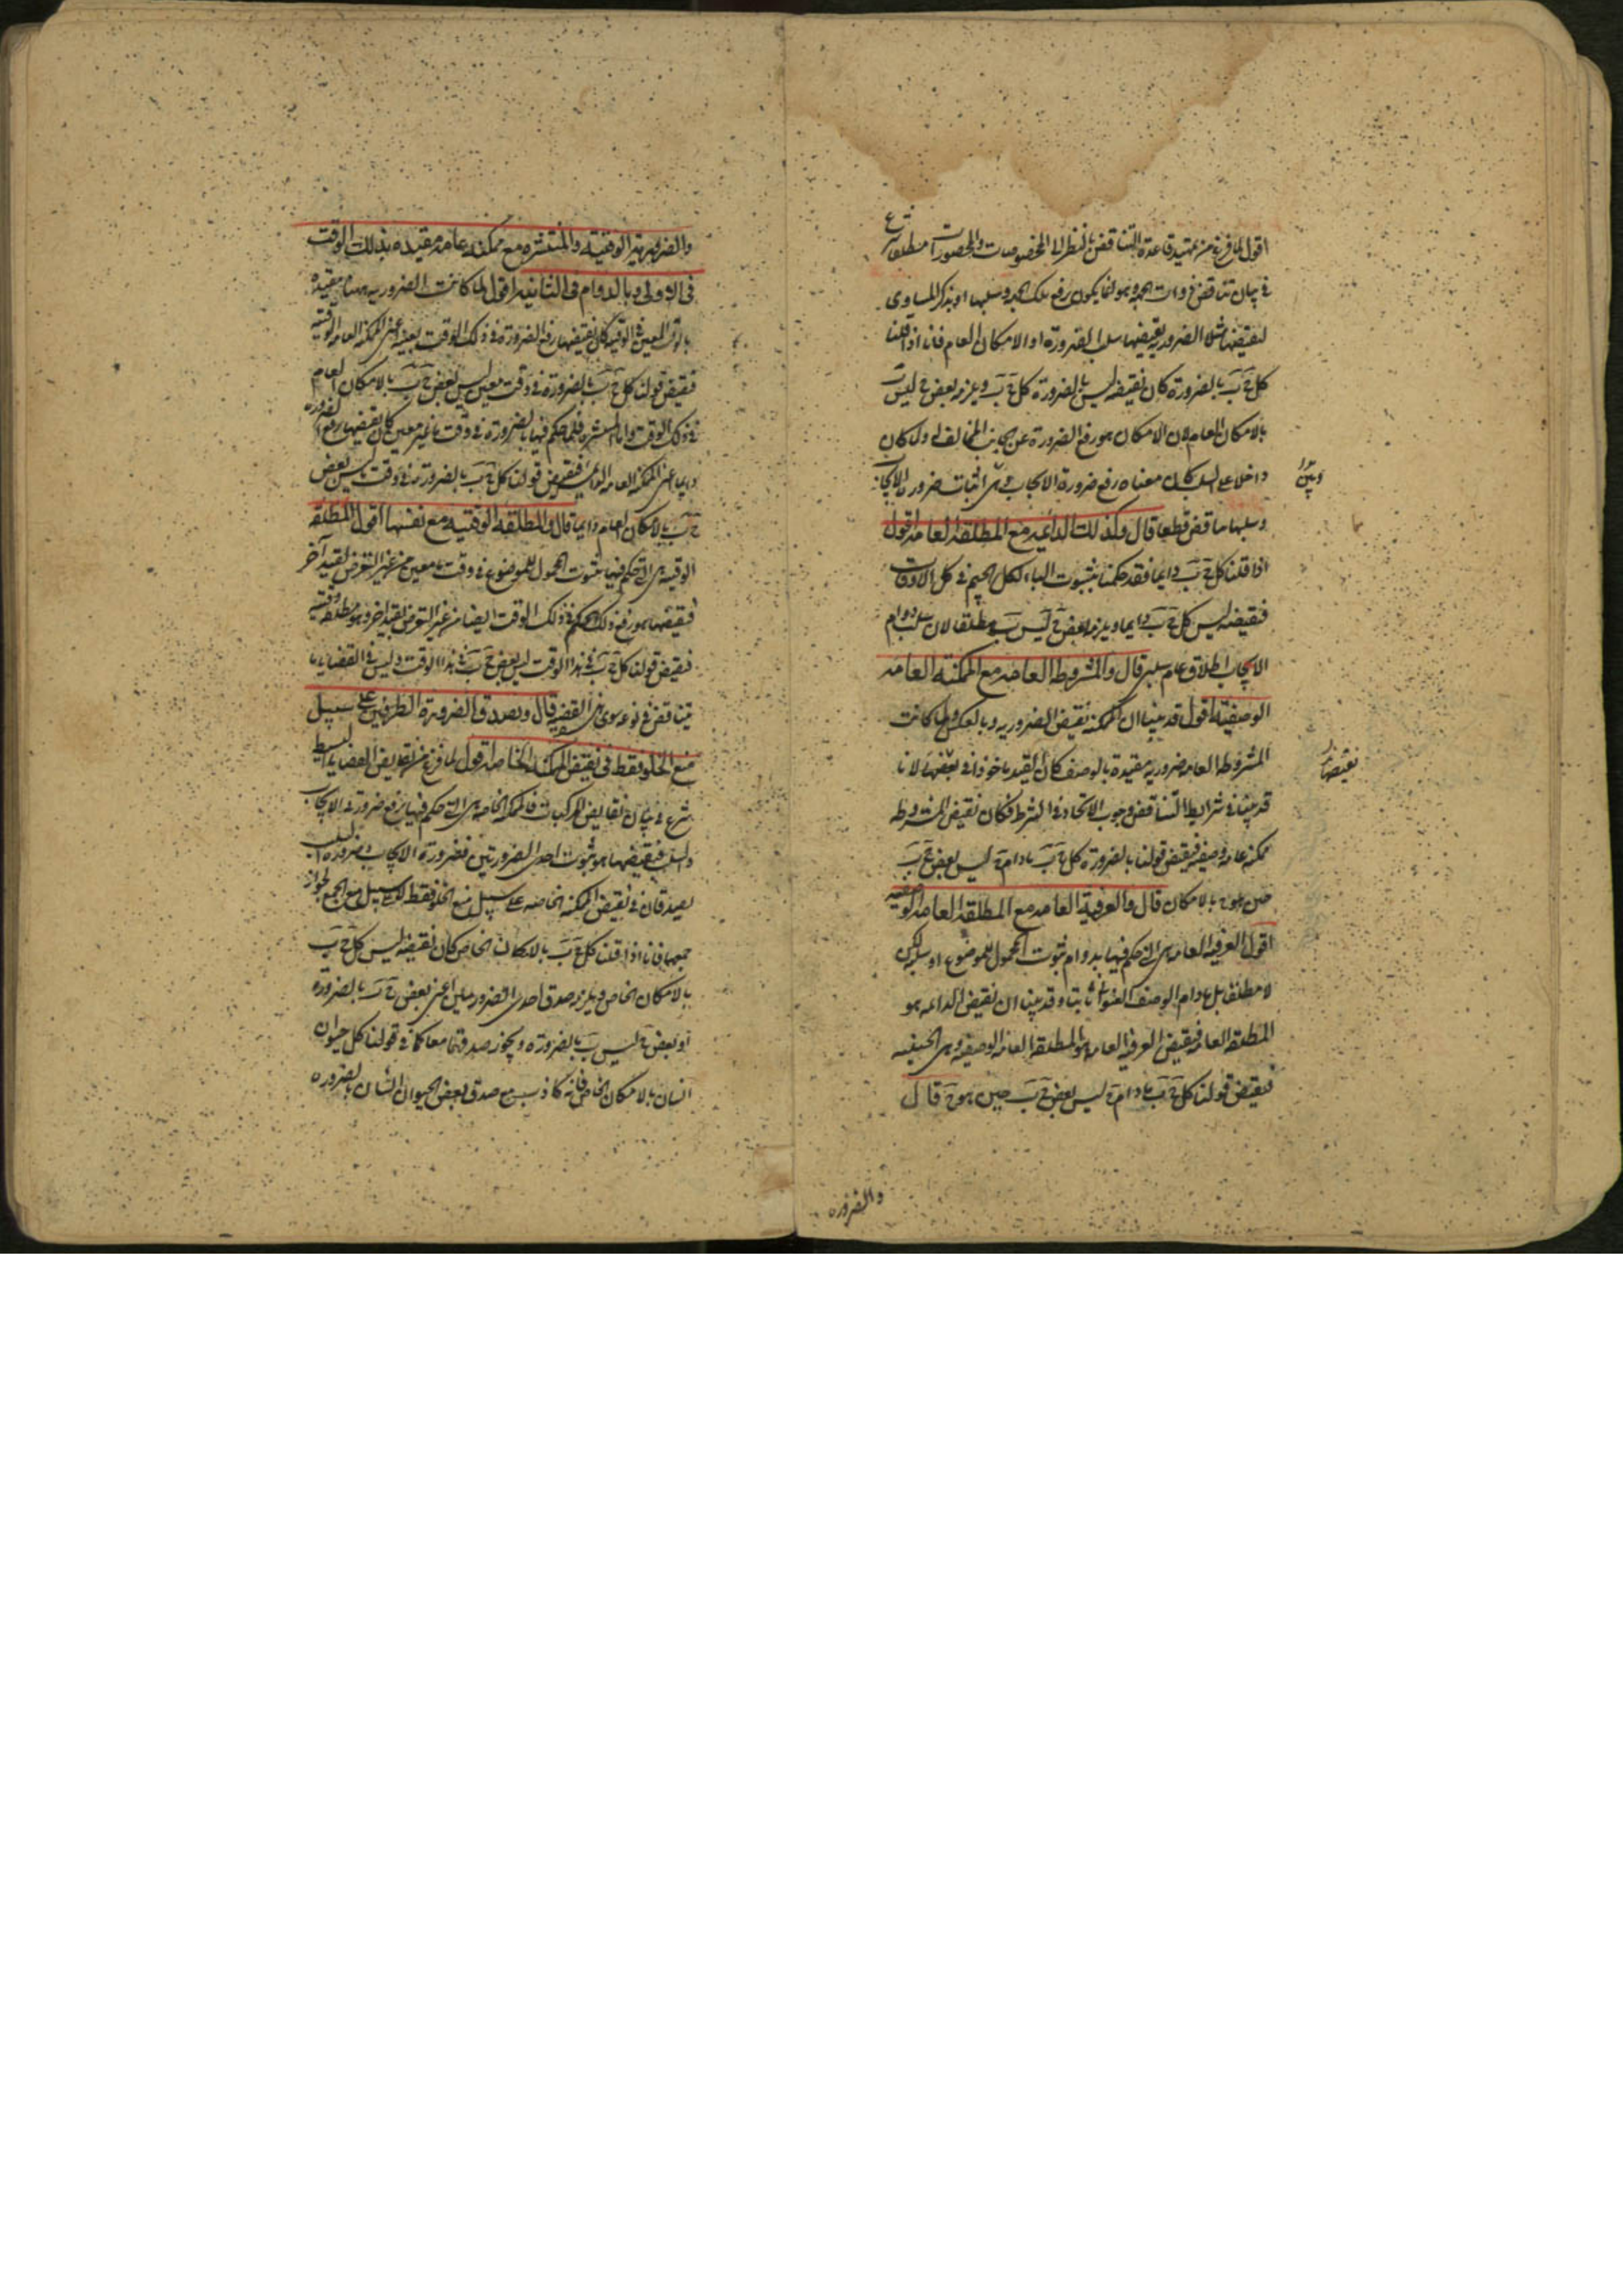 اقول لما فرغ من تمهيد قاعدة التناقض بالنظر الى المخصوصات والمحصورات مطلقا شرع
فى بيان تناقض ذوات الجهة وهو انما يكون برفع تلك الجهة وسلبها او بذكر المساوى
لنقيضها مثلا الضرورية نقيضها سلب الضرورة او الامكان العام فانا اذا قلنا
كل ج ب بالضرورة كان نقيضه ليس بالضرورة كل ج ب ويلزمه بعض ج ليس ب
بالامكان العام لان الامكان هو رفع الضرورة عن الجانب المخالف له ولما كان
داخلا على السلب كان معناه رفع ضرورة الايجاب وبين اثبات ضرورة الايجاب
وبين
وسلبها تناقض قطعا قال وكذلك الدائمة مع المطلقة العامة اقول
اذا قلنا كل ج ب دايما فقد حكمنا بثبوت الباء لكل الجيم فى كل الاوقات
فنقيضه ليس كل ج ب دايما ويلزمه بعض ج ليس ب مطلقا لان سلب دوام
الايجاب اطلاق عام سلبى قال والمشروطة العامة مع الممكنة العامة
الوصفية اقول قد بينا ان الممكنة نقيض الضرورية وبالعكس ولما كانت
المشروطة العامة ضرورية مقيدة بالوصف كان القيد ماخوذا فى نقيضها لانا
نقيضها
قد بينا فى شرايط التناقض وجوب الاتحاد فى الشرط فكان نقيض المشروطة
ممكنة عامة وصفية فنقيض قولنا بالضرورة كل ج ب مادام ج ليس بعض ج ب
حين هو ج بالامكان قال والعرفية العامة مع المطلقة العامة الوصفية
اقول العرفية العامة هى التى حكم فيها بدوام ثبوت المحمول للموضوع او سلبه لكن
لا مطلقا بل مادام الوصف العنوانى ثابتا وقد بينا ان نقيض الدائمة هو
المطلقة العامة فنقيض العرفية العامة هو المطلقة العامة الوصفية وهى الحينية
فنقيض قولنا كل ج ب مادام ج ليس بعض ج ب حين هو ج قال
والضرورة
والضرورية الوقتية والمنتشرة مع ممكنة عامة مقيدة بذلك الوقت
فى الاولى وبالدوام فى الثانية اقول لما كانت الضرورية ههنا مقيدة
بالوقت المعين فى الوقتية كان نقيضها رفع الضرورة فى ذلك الوقت بعينه اعنى الممكنة العامة الوقتية
فنقيض قولنا كل ج ب بالضرورة فى وقت معين ليس بعض ج ب بالامكان العام
فى ذلك الوقت واما المنتشرة فلما حكم فيها بالضرورة فى وقت ما غير معين كان نقيضها رفع الضرورة
دايما اعنى الممكنة العامة الدائمة فنقيض قولنا كل ج ب بالضرورة فى وقت ليس بعض
ج ب بالامكان العام دايما قال والمطلقة الوقتية مع نفسها اقول المطلقة
الوقتية هى التى حكم فيها بثبوت المحمول للموضوع فى وقت ما معين من غير التعرض لقيد آخر
فنقيضها هو رفع ذلك الحكم فى ذلك الوقت ايضا من غير التعرض لقيد اخر وهو مطلقة وقتية
فنقيض قولنا كل ج ب فى هذا الوقت ليس بعض ج ب فى هذا الوقت وليس فى القضايا ما
يتناقض فى نوعه سوى هذه القضية قال ويصدق الضرورة الطرفين على سبيل
منع الخلو فقط فى نقيض الممكنة الخاصة اقول لما فرغ من نقايض القضايا البسيطة
شرع فى بيان نقايض المركبات فالممكنة الخاصة هى التى حكم فيها برفع ضرورتى الايجاب
والسلب فنقيضها هو ثبوت احدى الضرورتين فضرورة الايجاب وضرورة السلب
يصدقان فى نقيض الممكنة الخاصة على سبيل منع الخلو فقط لا على سبيل منع الجمع لجواز
جمعهما فانا اذا قلنا كل ج ب بالامكان الخاص كان نقيضه ليس كل ج ب
بالامكان الخاص ويلزمه صدق احدى الضرورتين اعنى بعض ج ب بالضرورة
او بعض ج ليس ب بالضرورة ويجوز صدقهما معا كما فى قولنا كل حيوان
انسان بالامكان الخاص فانه كاذب مع صدق بعض الحيوان انسان بالضرورة